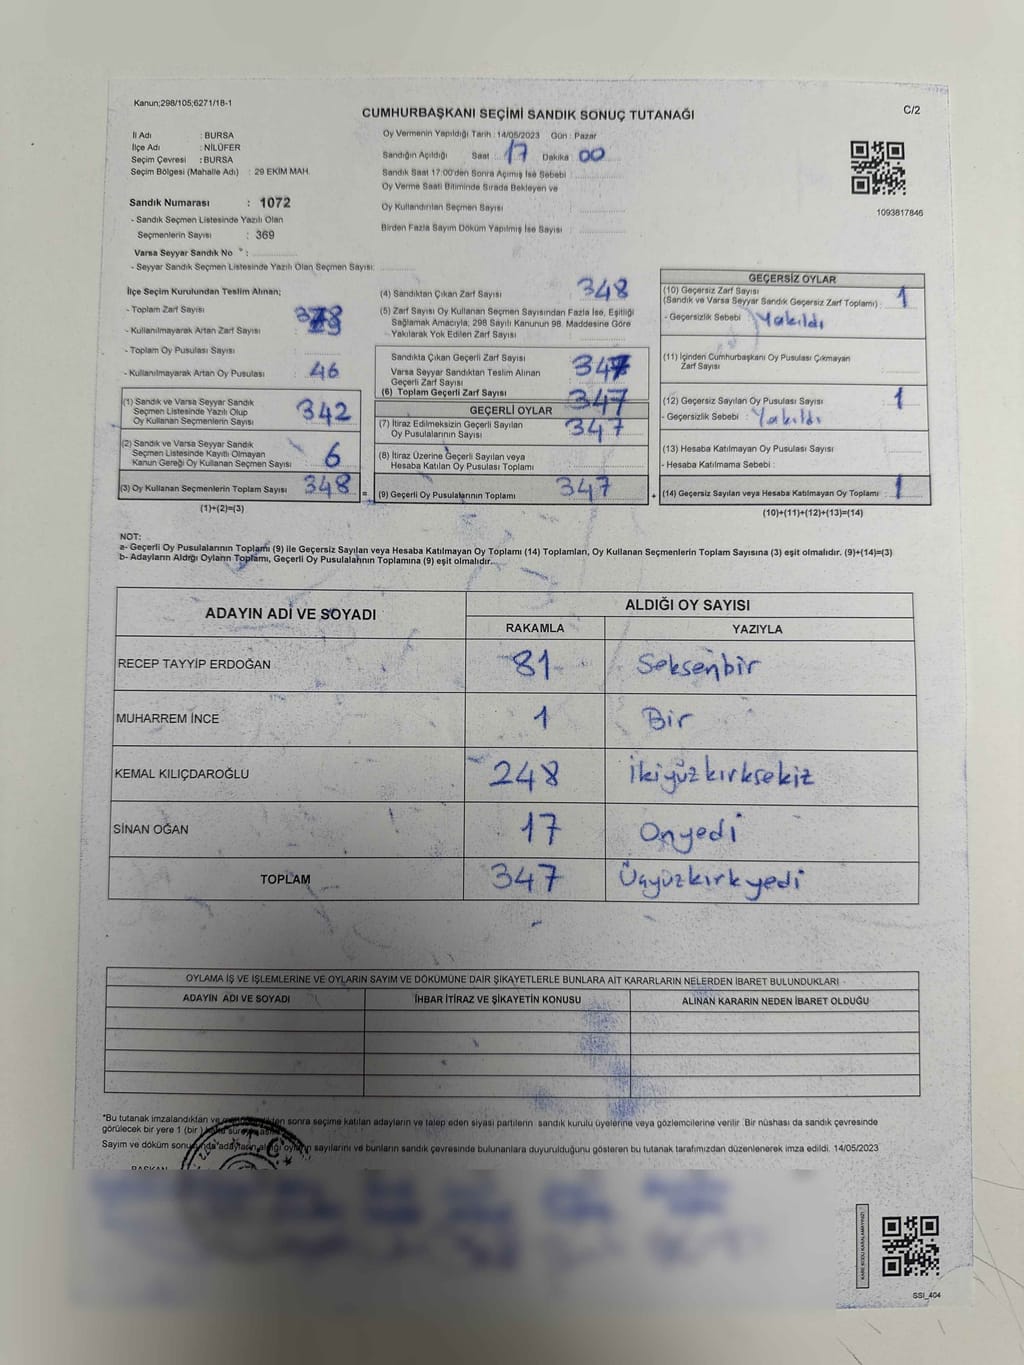 Kanun;298/105;6271/18-1
C/2
CUMHURBAŞKANI SEÇİMİ SANDIK SONUÇ TUTANAĞI
İl Adı : BURSA
İlçe Adı : NİLÜFER
Seçim Çevresi : BURSA
Seçim Bölgesi (Mahalle Adı) : 29 EKİM MAH.
Oy Vermenin Yapıldığı Tarih : 14/05/2023 Gün : Pazar
Sandığın Açıldığı Saat : 17 Dakika : 00
Sandık Saat 17:00'den Sonra Açımış İse Sebebi :
Oy Verme Saati Bitiminde Sırada Bekleyen ve
Oy Kullandırılan Seçmen Sayısı :
Birden Fazla Sayım Döküm Yapılmış İse Sayısı :
1093817846
Sandık Numarası : 1072
- Sandık Seçmen Listesinde Yazılı Olan
Seçmenlerin Sayısı : 369
Varsa Seyyar Sandık No * :
- Seyyar Sandık Seçmen Listesinde Yazılı Olan Seçmen Sayısı:
İlçe Seçim Kurulundan Teslim Alınan;
- Toplam Zarf Sayısı
- Kullanılmayarak Artan Zarf Sayısı
- Toplam Oy Pusulası Sayısı
- Kullanılmayarak Artan Oy Pusulası 46
(1) Sandık ve Varsa Seyyar Sandık
Seçmen Listesinde Yazılı Olup
Oy Kullanan Seçmenlerin Sayısı 342
(2) Sandık ve Varsa Seyyar Sandık
Seçmen Listesinde Kayıtlı Olmayan
Kanun Gereği Oy Kullanan Seçmen Sayısı 6
(3) Oy Kullanan Seçmenlerin Toplam Sayısı 348 =
(1)+(2)=(3)
(4) Sandıktan Çıkan Zarf Sayısı 348
(5) Zarf Sayısı Oy Kullanan Seçmen Sayısından Fazla İse, Eşitliği
Sağlamak Amacıyla, 298 Sayılı Kanunun 98. Maddesine Göre
Yakılarak Yok Edilen Zarf Sayısı
Sandıkta Çıkan Geçerli Zarf Sayısı 347
Varsa Seyyar Sandıktan Teslim Alınan
Geçerli Zarf Sayısı
(6) Toplam Geçerli Zarf Sayısı 347
GEÇERLİ OYLAR
(7) İtiraz Edilmeksizin Geçerli Sayılan
Oy Pusulalarının Sayısı 347
(8) İtiraz Üzerine Geçerli Sayılan veya
Hesaba Katılan Oy Pusulası Toplamı
(9) Geçerli Oy Pusulalarının Toplamı 347 +
GEÇERSİZ OYLAR
(10) Geçersiz Zarf Sayısı
(Sandık ve Varsa Seyyar Sandık Geçersiz Zarf Toplamı) 1
- Geçersizlik Sebebi Yakıldı
(11) İçinden Cumhurbaşkanı Oy Pusulası Çıkmayan
Zarf Sayısı
(12) Geçersiz Sayılan Oy Pusulası Sayısı 1
- Geçersizlik Sebebi Yakıldı
(13) Hesaba Katılmayan Oy Pusulası Sayısı
- Hesaba Katılmama Sebebi :
(14) Geçersiz Sayılan veya Hesaba Katılmayan Oy Toplamı 1
(10)+(11)+(12)+(13)=(14)
NOT:
a- Geçerli Oy Pusulalarının Toplamı (9) ile Geçersiz Sayılan veya Hesaba Katılmayan Oy Toplamı (14) Toplamları, Oy Kullanan Seçmenlerin Toplam Sayısına (3) eşit olmalıdır. (9)+(14)=(3)
b- Adayların Aldığı Oyların Toplamı, Geçerli Oy Pusulalarının Toplamına (9) eşit olmalıdır.
ADAYIN ADI VE SOYADI
ALDIĞI OY SAYISI
RAKAMLA YAZIYLA
RECEP TAYYİP ERDOĞAN 81 Seksenbir
MUHARREM İNCE 1 Bir
KEMAL KILIÇDAROĞLU 248 İkiyüzkırksekiz
SİNAN OĞAN 17 Onyedi
TOPLAM 347 Üçyüzkırkyedi
OYLAMA İŞ VE İŞLEMLERİNE VE OYLARIN SAYIM VE DÖKÜMÜNE DAİR ŞİKAYETLERLE BUNLARA AİT KARARLARIN NELERDEN İBARET BULUNDUKLARI
ADAYIN ADI VE SOYADI İHBAR İTİRAZ VE ŞİKAYETİN KONUSU ALINAN KARARIN NEDEN İBARET OLDUĞU
*Bu tutanak imzalandıktan ve sonra seçime katılan adayların ve talep eden siyasi partilerin sandık kurulu üyelerine veya gözlemcilerine verilir. Bir nüshası da sandık çevresinde
görülecek bir yere 1 (bir)
Sayım ve döküm adayların aldığı oyların sayılarını ve bunların sandık çevresinde bulunanlara duyurulduğunu gösteren bu tutanak tarafımızdan düzenlenerek imza edildi. 14/05/2023
BAŞKAN
KARE KODU KARALAMAYINIZ!
SSI_404